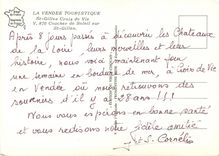 LA VENDÉE TOURISTIQUE
St-Gilles Croix de Vie
V. 819 Coucher de Soleil sur
St-Gilles.
Après 8 jours passés à découvrir les Châteaux
de la Loire, leurs merveilles et leur
histoire, nous voici maintenant pour
une semaine en bordure de mer, à Croix de Vie
en Vendée où nous retrouvons des
souvenirs d'il y a 28 ans !!!
Nous vous espérons en bonne santé
et vous redisons notre fidèle amitié
et S. Cornélis